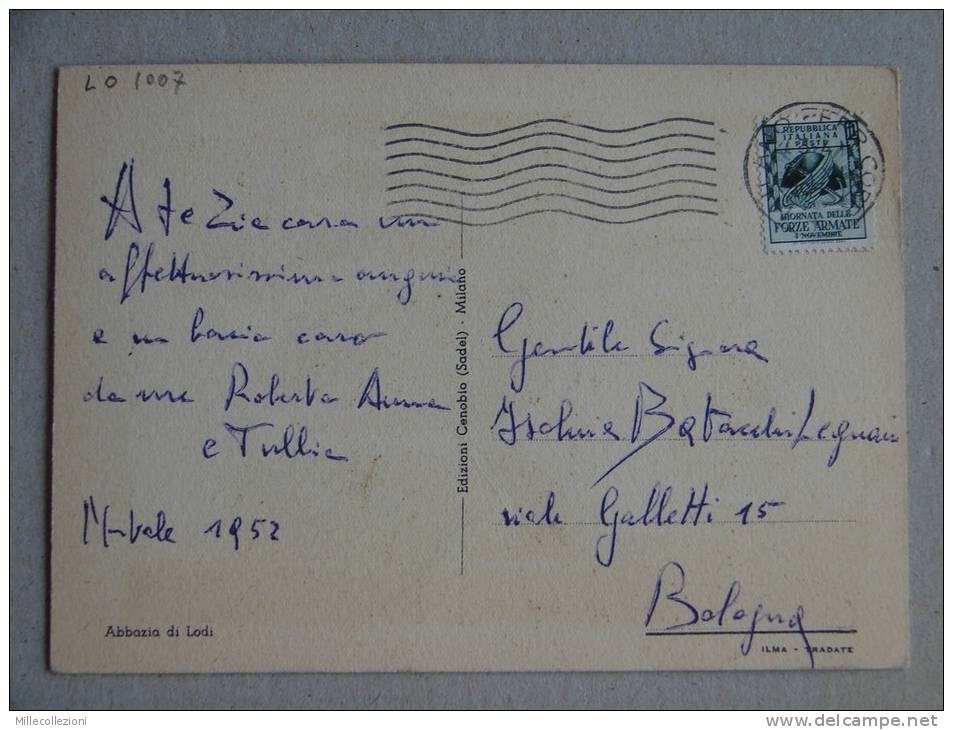 LO 1007
REPUBBLICA
ITALIANA
POSTE
GIORNATA DELLE
FORZE ARMATE
4 NOVEMBRE
A te Zia cara un
affettuosissimo augurio
e un bacio caro
da me Roberto Anna
e Tullia
Natale 1952
Abbazia di Lodi
Edizioni Cenobio (Sadel) - Milano
Gentile Signora
Legnani
viale Galletti 15
Bologna
ILMA - TRADATE
Millecollezioni
www.delcampe.net